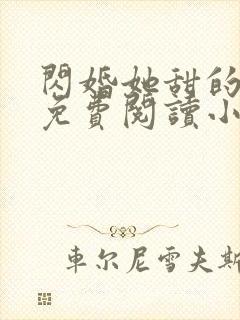 閃婚她甜的
免費閱讀小
車尔尼雪夫斯